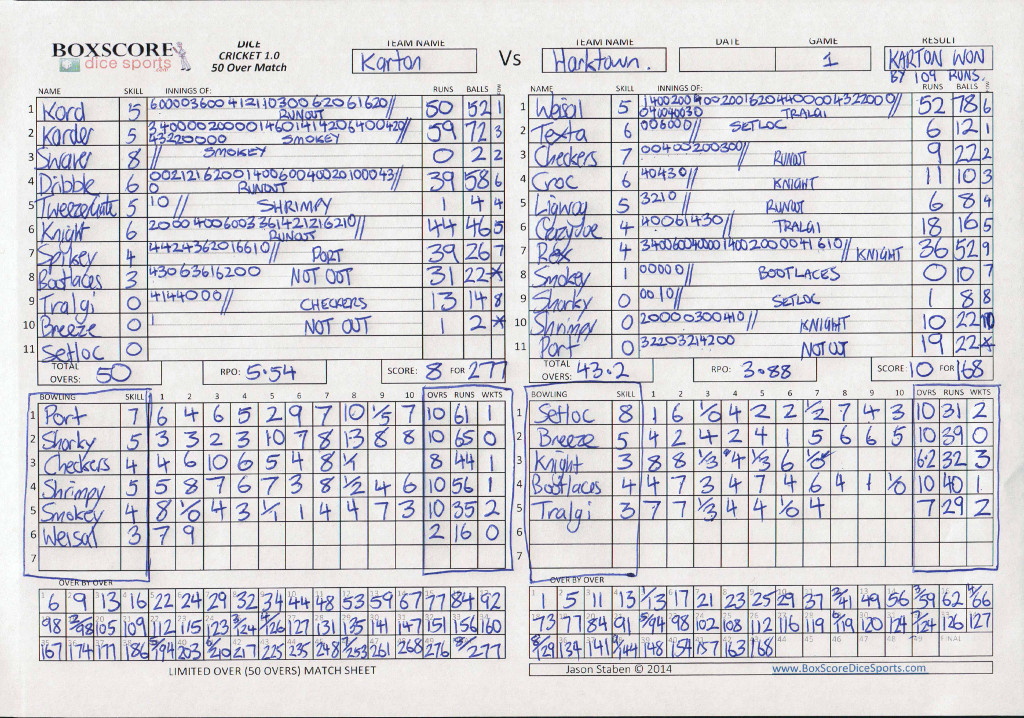 BOXSCORE
dice sports
DICE
CRICKET 1.0
50 Over Match
TEAM NAME
Karton
Vs
TEAM NAME
Harktown.
DATE
GAME
1
RESULT
KARTON WON
BY 109 RUNS.
NAME SKILL INNINGS OF: RUNS BALLS
1 Kord 5 RUNOUT 50 52 1
2 Karder 5 SMOKEY 59 72 3
3 Swaver 8 // SMOKEY 0 2 2
4 Dribble 6 RUNOUT 39 58 6
5 5 10 // SHRIMPY 1 4 4
6 Knight 6 RUNOUT 44 46 5
7 Spikey 4 4424362016610// PORT 39 26 7
8 Bootlaces 3 43063616200 NOT OUT 31 22 *
9 Tralgi 0 4144000// CHECKERS 13 14 8
10 Breeze 0 1 NOT OUT 1 2 *
11 Setloc 0
TOTAL OVERS: 50 RPO: 5.54 SCORE: 8 FOR 277
BOWLING SKILL 1 2 3 4 5 6 7 8 9 10 OVRS RUNS WKTS
1 Port 7 6 4 6 5 2 9 7 10 1/5 7 10 61 1
2 Sharky 5 3 3 2 3 10 7 8 13 8 8 10 65 0
3 Checkers 4 4 6 10 6 5 4 8 1/1 8 44 1
4 Shrimpy 5 5 8 7 6 7 3 8 1/2 4 6 10 56 1
5 Smokey 4 8 1/0 4 3 1/1 1 4 4 7 3 10 35 2
6 Weisal 3 7 9 2 16 0
7
OVER BY OVER
6 9 13 16 22 24 29 32 34 44 48 53 59 67 77 84 92
98 2/98 105 109 112 115 123 3/124 4/126 127 131 135 141 147 151 156 160
167 174 177 186 5/194 203 6/210 217 225 235 248 7/253 261 268 276 8/277
LIMITED OVER (50 OVERS) MATCH SHEET
NAME SKILL INNINGS OF: RUNS BALLS
1 Weisal 5 TRALGI 52 78 6
2 Texta 6 006000// SETLOC 6 12 1
3 Checkers 7 00400200300// RUNOUT 9 22 2
4 Croc 6 40430// KNIGHT 11 10 3
5 Ligway 5 3210// RUNOUT 6 8 4
6 4 40061430// TRALGI 18 16 5
7 Rex 4 KNIGHT 36 52 9
8 Smokey 1 00000// BOOTLACES 0 10 7
9 Sharky 0 0010// SETLOC 1 8 8
10 Shrimpy 0 20000300410// KNIGHT 10 22 10
11 Port 0 32203214200 NOT OUT 19 22 *
TOTAL OVERS: 43.2 RPO: 3.88 SCORE: 10 FOR 168
BOWLING SKILL 1 2 3 4 5 6 7 8 9 10 OVRS RUNS WKTS
1 Setloc 8 1 6 1/0 4 2 2 1/2 7 4 3 10 31 2
2 Breeze 5 4 2 4 2 4 1 5 6 6 5 10 39 0
3 Knight 3 8 8 1/3 4 1/3 6 1/0 6.2 32 3
4 Bootlaces 4 4 7 3 4 7 4 6 4 1 1/0 10 40 1
5 Tralgi 3 7 7 1/3 4 4 1/0 4 7 29 2
6
7
OVER BY OVER
1 5 11 13 1/13 17 21 23 25 29 37 2/41 49 56 3/59 62 4/66
73 77 84 91 5/94 98 102 108 112 116 119 6/119 120 124 7/124 126 127
8/129 134 141 9/144 148 154 157 163 168 FINAL
Jason Staben © 2014
www.BoxScoreDiceSports.com